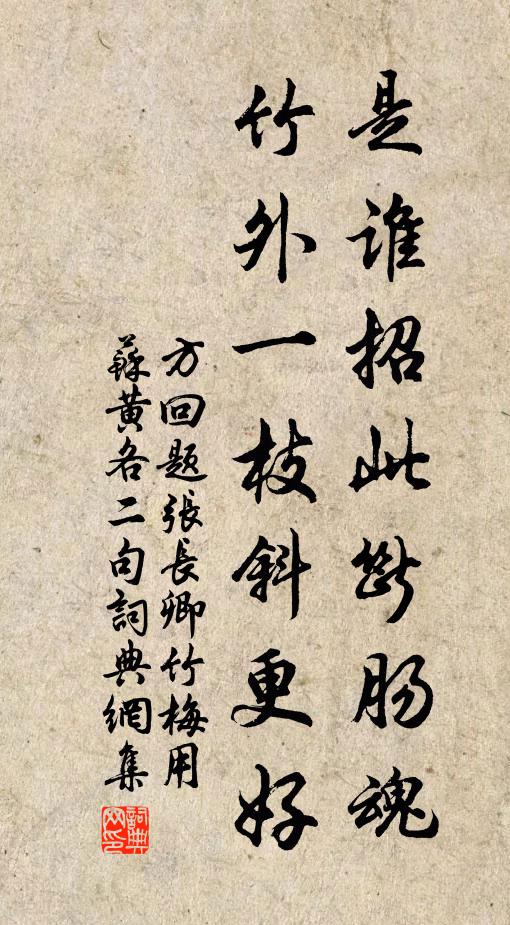 是谁招此断肠魂
竹外一枝斜更好
方回题張長卿竹梅用
蘇黄各二句詞典網集
詞典網印